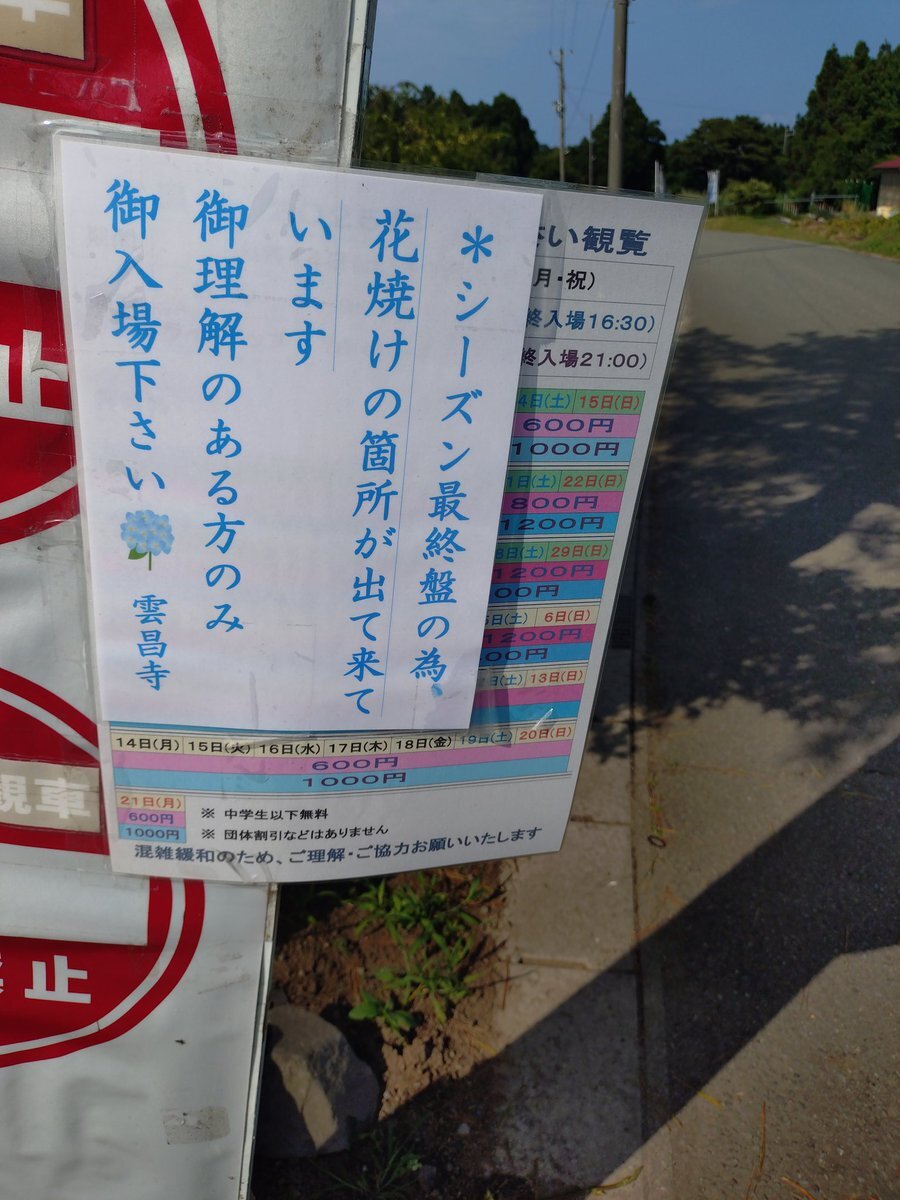 ＊シーズン最終盤の為、
花焼けの箇所が出て来て
います
御理解のある方のみ
御入場下さい
雲昌寺
さい観覧
月・祝）
終入場16:30）
終入場21:00）
4日(土) 15日(日)
600円
1000円
1日(土) 22日(日)
800円
1200円
8日(土) 29日(日)
1200円
00円
5日(土) 6日(日)
1200円
00円
(土) 13日(日)
14日(月) 15日(火) 16日(水) 17日(木) 18日(金) 19日(土) 20日(日)
600円
1000円
21日(月)
600円
1000円
※ 中学生以下無料
※ 団体割引などはありません
混雑緩和のため、ご理解・ご協力お願いいたします
止
観車
禁止